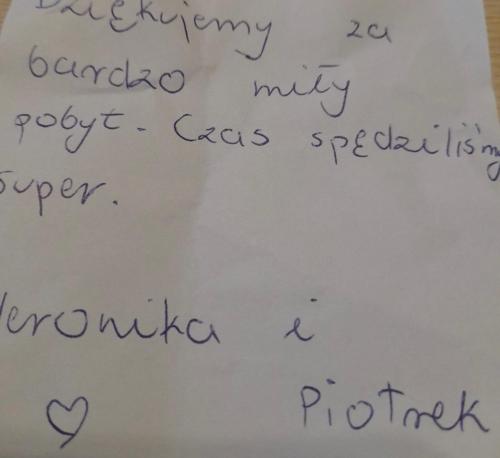 Dziękujemy za
bardzo miły
pobyt. Czas spędziliśmy
super.
Weronika i
Piotrek